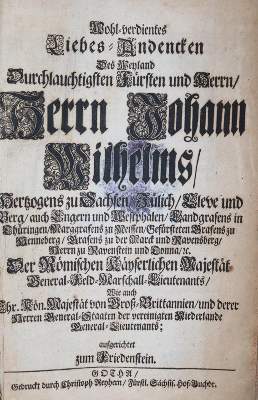 Wohl-verdientes
Liebes-Andencken
Des Weyland
Durchlauchtigsten Fürsten und Herrn/
Herrn Johann
Wilhelms/
Hertzogens zu Sachsen/ Jülich/ Cleve und
Berg/ auch Engern und Westphalen/ Landgrafens in
Thüringen/ Marggrafens zu Meissen/ Gefürsteten Grafens zu
Henneberg/ Grafens zu der Marck und Ravensberg/
Herrn zu Ravenstein und Tonna/ &c.
Der Römischen Kayserlichen Majestät
General-Feld-Marschall-Lieutenants/
Wie auch
Ihr. Kön. Majestät von Groß-Brittannien/ und derer
Herren General-Staaten der vereinigten Niederlande
General-Lieutenants;
aufgerichtet
zum Friedenstein.
GOTHA/
Gedruckt durch Christoph Reyhern/ Fürstl. Sächsis. Hof-Buchdr.